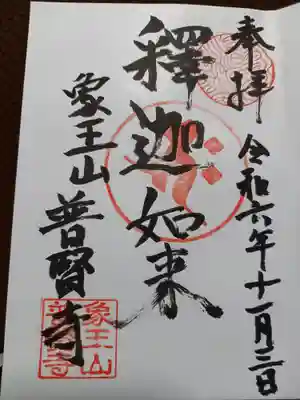 奉拝
令和六年十一月三日
釋迦如来
象王山普賢寺
象王山
普賢寺